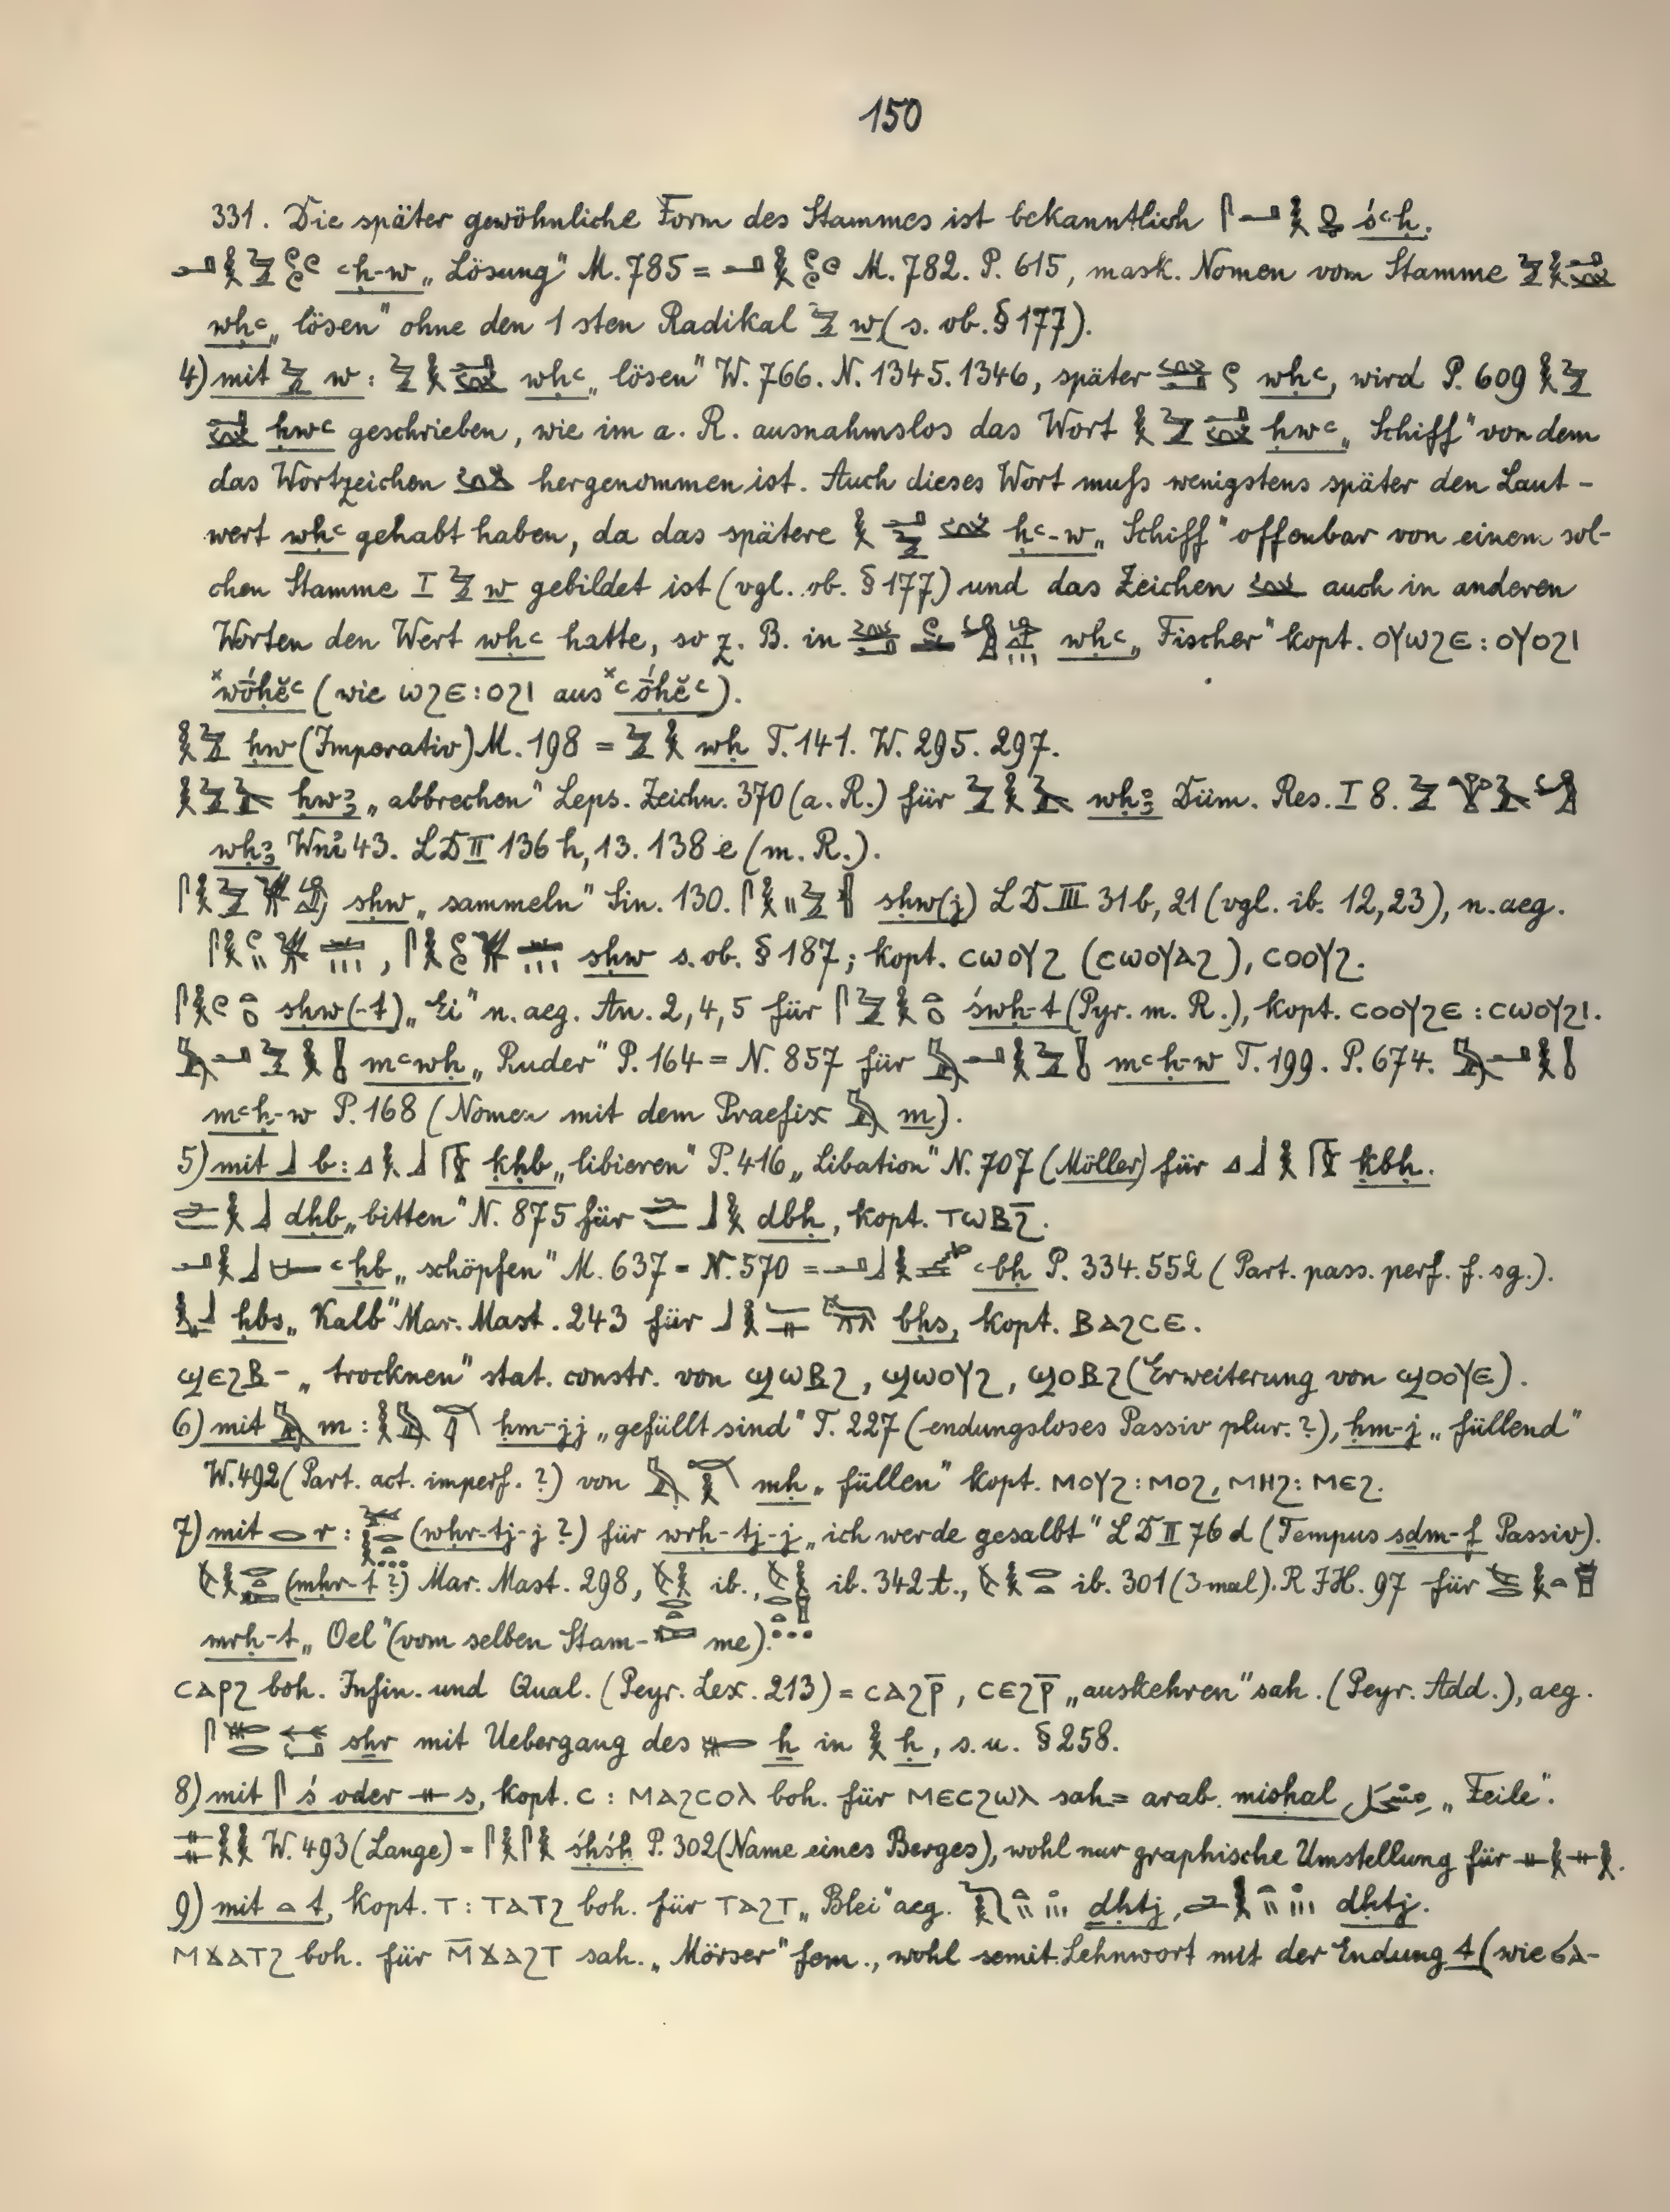 150
331. Die später gewöhnliche Form des Stammes ist bekanntlich śꜥḥ.
ꜥḥ-w „Lösung" M. 785 = M. 782. P. 615, mask. Nomen vom Stamme
wḥꜥ „lösen" ohne den 1sten Radikal w (s. ob. § 177).
4) mit w: wḥꜥ „lösen" W. 766. N. 1345. 1346, später wḥꜥ, wird P. 609
ḥwꜥ geschrieben, wie im a. R. ausnahmslos das Wort ḥwꜥ „Schiff" von dem
das Wortzeichen hergenommen ist. Auch dieses Wort muſs wenigstens später den Laut-
wert wḥꜥ gehabt haben, da das spätere ḥꜥ-w „Schiff" offenbar von einem sol-
chen Stamme I w gebildet ist (vgl. ob. § 177) und das Zeichen auch in anderen
Worten den Wert wḥꜥ hatte, so z. B. in wḥꜥ „Fischer" kopt. ⲟⲩⲱϩⲉ : ⲟⲩⲟϩⲓ
ˣwóḥĕꜥ (wie ⲱϩⲉ : ⲟϩⲓ aus ˣꜥóḥĕꜥ).
ḥw (Imperativ) M. 198 = wḥ T. 141. W. 295. 297.
ḥwꜣ „abbrechen" Leps. Zeichn. 370 (a. R.) für wḥꜣ Düm. Res. I 8.
wḥꜣ Wnỉ 43. LD II 136 h, 13. 138 e (m. R.).
sḥw „sammeln" Sin. 130. sḥw(j) LD III 31b, 21 (vgl. ib. 12, 23), n. aeg.
, sḥw s. ob. § 187; kopt. ⲥⲱⲟⲩϩ (ⲥⲱⲟⲩⲁϩ), ⲥⲟⲟⲩϩ.
sḥw(-t) „Ei" n. aeg. An. 2, 4, 5 für śwḥ-t (Pyr. m. R.), kopt. ⲥⲟⲟⲩϩⲉ : ⲥⲱⲟⲩϩⲓ.
mꜥwḥ „Ruder" P. 164 = N. 857 für mꜥḥ-w T. 199. P. 674.
mꜥḥ-w P. 168 (Nomen mit dem Praefix m).
5) mit b: ḳḥb „libieren" P. 416 „Libation" N. 707 (Möller) für ḳbḥ.
dḥb „bitten" N. 875 für dbḥ, kopt. ⲧⲱⲃϩ̅.
ꜥḥb „schöpfen" M. 637 = N. 570 = ꜥbḥ P. 334. 552 (Part. pass. perf. f. sg.).
ḥbs „Kalb" Mar. Mast. 243 für bḥs, kopt. ⲃⲁϩⲥⲉ.
ϣⲉϩⲃ- „trocknen" stat. constr. von ϣⲱⲃϩ, ϣⲱⲟⲩϩ, ϣⲟⲃϩ (Erweiterung von ϣⲟⲟⲩⲉ).
6) mit m: ḥm-jj „gefüllt sind" T. 227 (endungsloses Passiv plur. ?), ḥm-j „füllend"
W. 492 (Part. act. imperf. ?) von mḥ „füllen" kopt. ⲙⲟⲩϩ : ⲙⲟϩ, ⲙⲏϩ : ⲙⲉϩ.
7) mit r: (wḥr-tj-j ?) für wrḥ-tj-j „ich werde gesalbt" LD II 76 d (Tempus sḏm-f Passiv).
(mḥr-t ?) Mar. Mast. 298, ib., ib. 342 t., ib. 301 (3 mal). R IH. 97 für
mrḥ-t „Oel" (vom selben Stam- me).
ⲥⲁⲣϩ boh. Infin. und Qual. (Peyr. Lex. 213) = ⲥⲁϩⲣ̅, ⲥⲉϩⲣ̅ „auskehren" sah. (Peyr. Add.), aeg.
sẖr mit Uebergang des ẖ in ḥ, s. u. § 258.
8) mit ś oder s, kopt. ⲥ : ⲙⲁϩⲥⲟⲗ boh. für ⲙⲉⲥϩⲱⲗ sah. = arab. misḥal „Feile".
W. 493 (Lange) = śḥśḥ P. 302 (Name eines Berges), wohl nur graphische Umstellung für .
9) mit t, kopt. ⲧ : ⲧⲁⲧϩ boh. für ⲧⲁϩⲧ „Blei" aeg. dḥtj, dḥtj.
ⲙϫⲁⲧϩ boh. für ⲙ̅ϫⲁϩⲧ sah. „Mörser" fem., wohl semit. Lehnwort mit der Endung t (wie ϭⲁ-